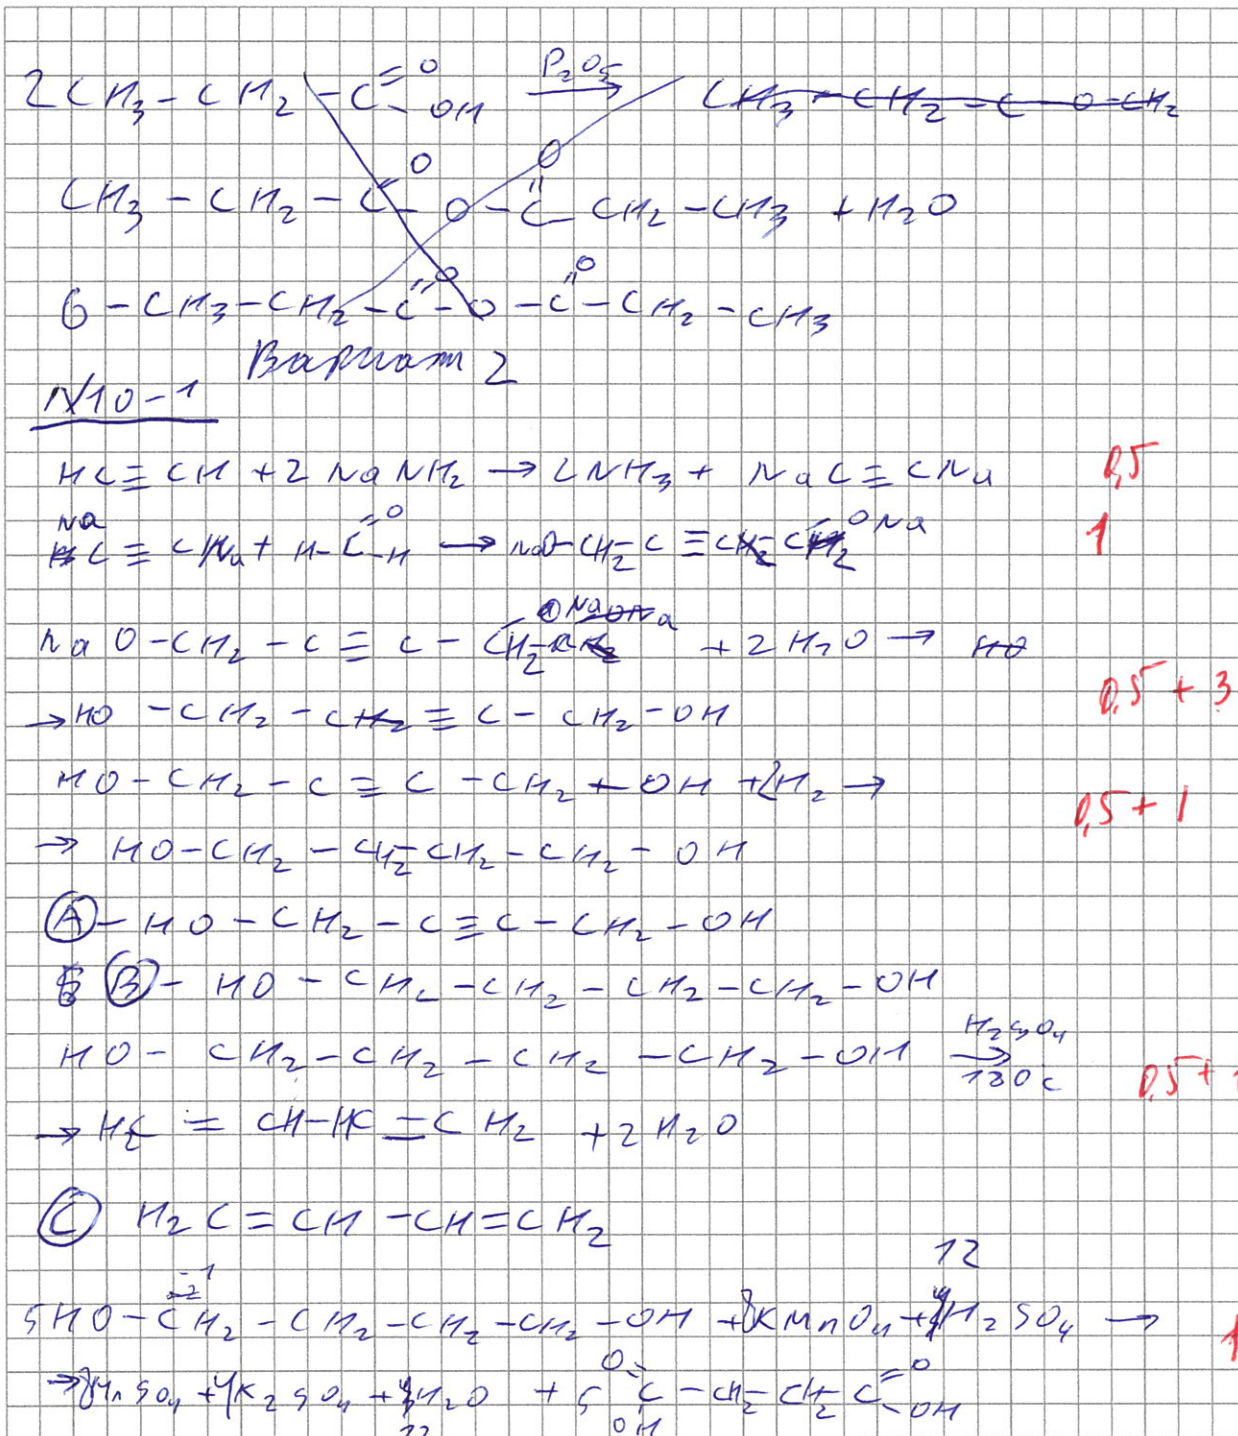 2CH₃-CH₂-C(=O)OH →(P₂O₅) CH₃-CH₂-C-O-CH₂
CH₃-CH₂-C(=O)-O-C(=O)-CH₂-CH₃ + H₂O
Б-CH₃-CH₂-C(=O)-O-C(=O)-CH₂-CH₃
Вариант 2
N10-1
HC≡CH + 2NaNH₂ → 2NH₃ + NaC≡CNa 0,5
NaC≡CNa + H-C(=O)-H → NaO-CH₂-C≡C-CH₂ONa 1
NaO-CH₂-C≡C-CH₂-ONa + 2H₂O → HO
→ HO-CH₂-C≡C-CH₂-OH 0,5+3
HO-CH₂-C≡C-CH₂-OH + 2H₂ →
→ HO-CH₂-CH₂-CH₂-CH₂-OH 0,5+1
(A)-HO-CH₂-C≡C-CH₂-OH
(B)-HO-CH₂-CH₂-CH₂-CH₂-OH
HO-CH₂-CH₂-CH₂-CH₂-OH →(H₂SO₄, 180C) 0,5+
→ H₂C=CH-HC=CH₂ + 2H₂O
(C) H₂C=CH-CH=CH₂
12
-1
5HO-CH₂-CH₂-CH₂-CH₂-OH + 8KMnO₄ + H₂SO₄ → 1
→ 8MnSO₄ + 4K₂SO₄ + H₂O + 5 C(=O)(OH)-CH₂-CH₂-C(=O)-OH
22